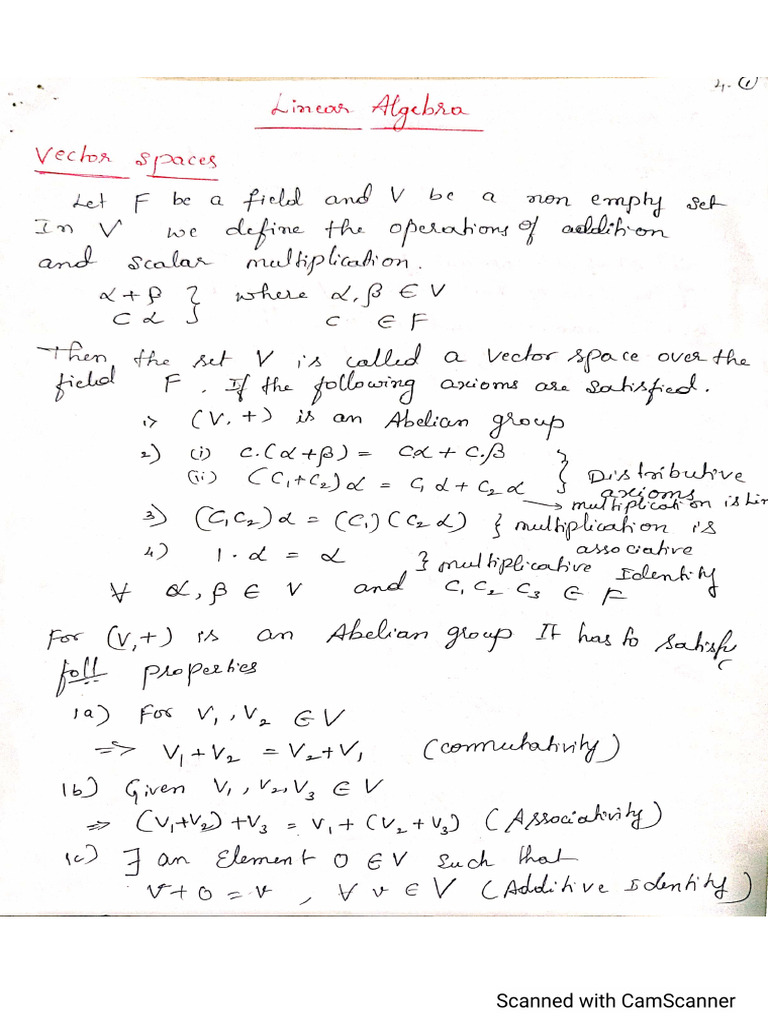 4. ①
Linear Algebra
Vector spaces
Let F be a field and V be a non empty set
In V we define the operations of addition
and scalar multiplication.
α + β } where α, β ∈ V
c α } c ∈ F
Then the set V is called a vector space over the
field F. If the following axioms are satisfied.
1) (V, +) is an Abelian group
2) (i) c.(α+β) = cα + c.β
(ii) (C₁+C₂)α = C₁α + C₂α } Distributive axioms
→ multiplication is lin
3) (C₁C₂)α = (C₁)(C₂α) } multiplication is associative
4) 1·α = α } multiplicative Identity
∀ α, β ∈ V and C₁ C₂ C₃ ∈ F
For (V,+) is an Abelian group It has to satisfy
foll properties
1a) For V₁, V₂ ∈ V
=> V₁ + V₂ = V₂ + V₁ (commutativity)
1b) Given V₁, V₂, V₃ ∈ V
=> (V₁+V₂) + V₃ = V₁ + (V₂ + V₃) (Associativity)
1c) ∃ an Element 0 ∈ V such that
V + 0 = v, ∀ v ∈ V (Additive Identity)
Scanned with CamScanner